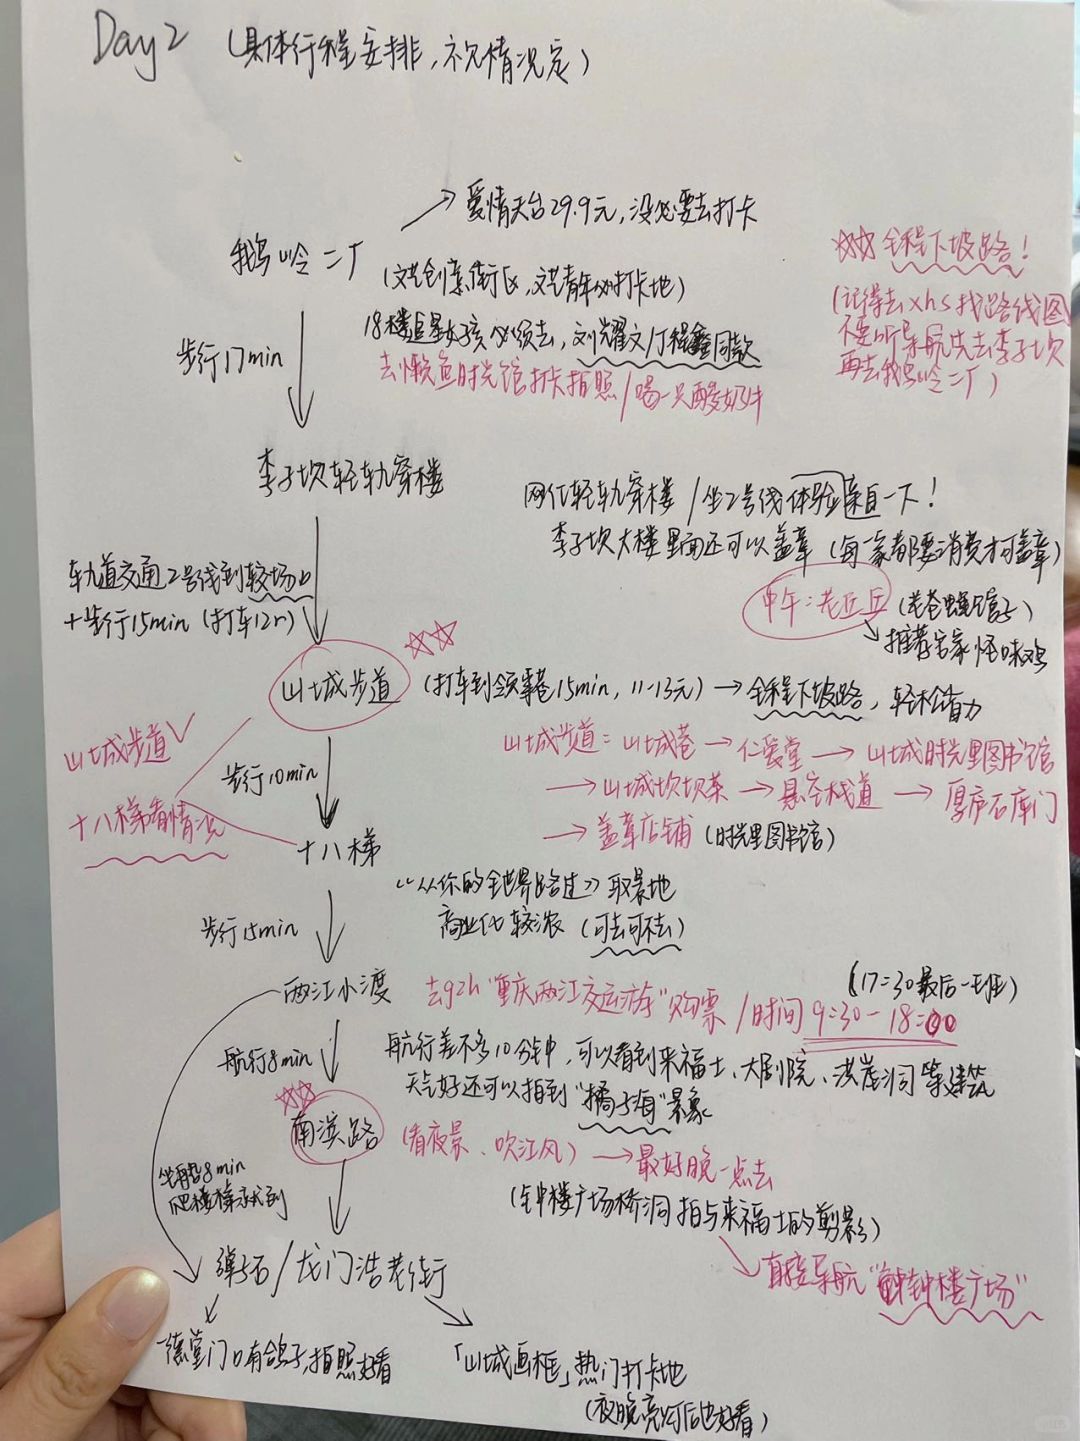 Day2 (具体行程安排,视情况定)
→爱情天台29.9元,没必要去打卡
鹅岭二厂
(文艺创意街区,文艺青年必打卡地)
18楼追星女孩必须去,刘耀文/丁程鑫同款
去懒鱼时光馆打卡拍照/喝一只酸奶牛
☆☆全程下坡路!
(记得去xhs找路线图
不要听导航先去李子坝
再去鹅岭二厂)
步行17min
李子坝轻轨穿楼
网红轻轨穿楼/坐2号线体验亲自一下!
李子坝大楼里面还可以盖章(每一家都要消费才可盖章)
中午:老丘丘(老巷蝇馆子)
→推荐官家怪味鸡
轨道交通2号线到较场口
+步行15min(打车12r)
☆☆
山城步道 (打车到领事巷15min,11-13元)→全程下坡路,轻松省力
山城步道:山城巷→仁爱堂→山城时光里图书馆
→山城坎坎茶→悬空栈道→厚庐石库门
→盖章店铺(时光里图书馆)
山城步道✓
十八梯看情况
步行10min
十八梯
《从你的全世界路过》取景地
商业化较浓(可去可不去)
步行15min
两江小渡 去gzh"重庆两江交运游车"购票/时间9:30-18:00
(17:30最后一班)
航行8min
航行差不多10分钟,可以看到来福士、大剧院、洪崖洞等建筑
天气好还可以拍到"橘子海"景象
☆☆
南滨路 (看夜景、吹江风)→最好晚一点去
(钟楼广场桥洞拍与来福士的剪影)
→直接导航"钟楼广场"
8min
爬楼梯就到
弹子石/龙门浩老街
一德堂门口有鸽子,拍照好看
「山城画框」热门打卡地
(夜晚亮灯后也好看)